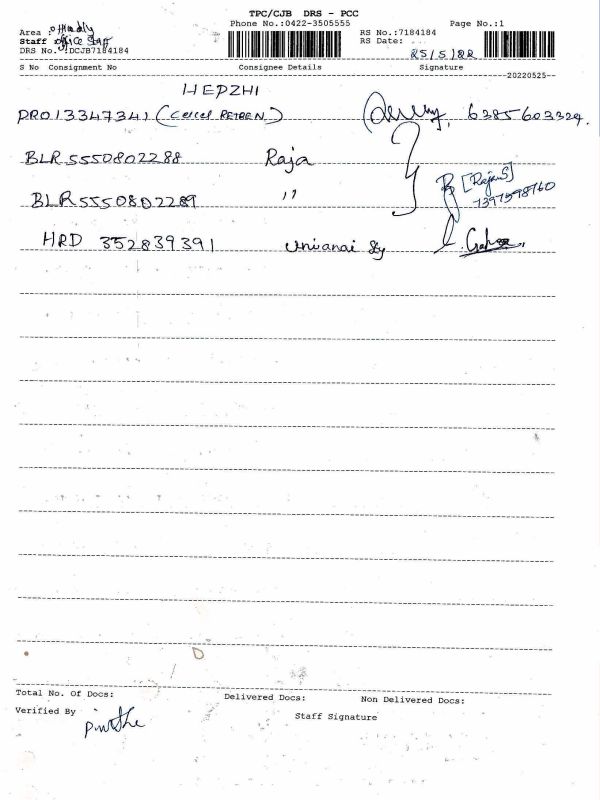 TPC/CJB DRS - PCC
Phone No.:0422-3505555
Page No.:1
Area :
Staff : office Staff
DRS No. :DCJB7184184
RS No.:7184184
RS Date:
25/5/22
S No Consignment No Consignee Details Signature
20220525
HEPZHI
PRO13347341 ( 6385603324.
BLR5550802288 Raja
BLR5550802289 "
[Rajan S]
HRD 352839391
Total No. Of Docs: Delivered Docs: Non Delivered Docs:
Verified By
Staff Signature